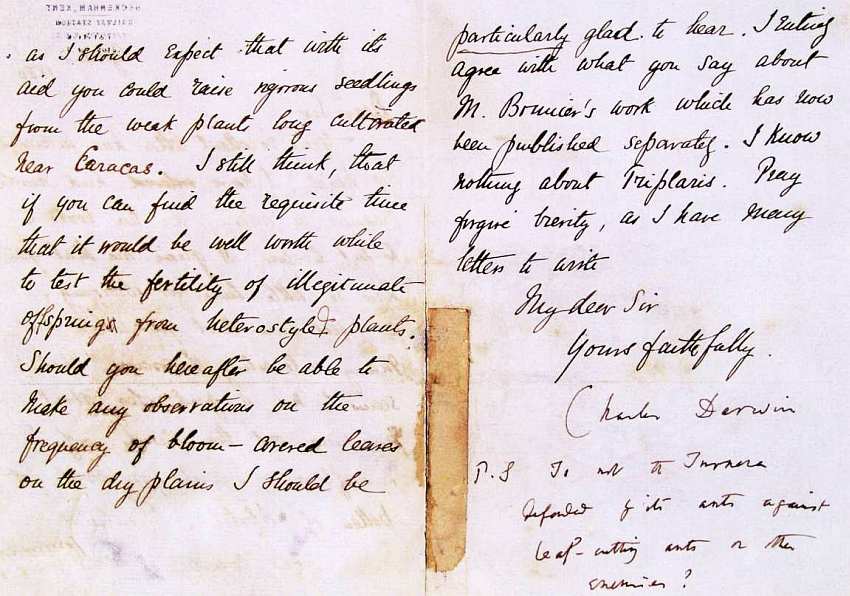 as I should expect that with its
aid you could raise vigorous seedlings
from the weak plants long cultivated
near Caracas. I still think, that
if you can find the requisite time
that it would be well worth while
to test the fertility of illegitimate
offspring from heterostyled plants.
Should you hereafter be able to
make any observations on the
frequency of bloom-covered leaves
on the dry plains I should be
particularly glad to hear. I entirely
agree with what you say about
M. Bonnier's work which has now
been published separately. I know
nothing about Triplaris. Pray
forgive brevity, as I have many
letters to write
My dear Sir
Yours faithfully.
Charles Darwin
P.S Is not the Turnera
defended by its ants against
leaf-cutting ants or other
enemies?